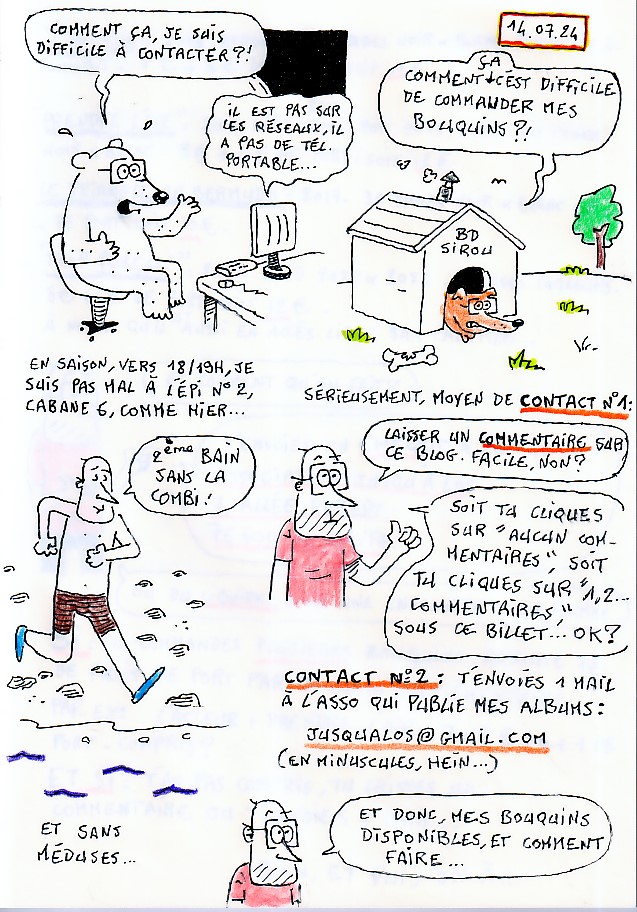 COMMENT ÇA, JE SUIS
DIFFICILE À CONTACTER?!
IL EST PAS SUR
LES RÉSEAUX, IL
A PAS DE TÉL.
PORTABLE...
14.07.24
ÇA
COMMENT C'EST DIFFICILE
DE COMMANDER MES
BOUQUINS?!
BD
SIROU
EN SAISON, VERS 18/19H, JE
SUIS PAS MAL À L'ÉPI N°2,
CABANE 6, COMME HIER...
2ème BAIN
SANS LA
COMBI!
SÉRIEUSEMENT, MOYEN DE CONTACT N°1:
LAISSER UN COMMENTAIRE SUR
CE BLOG. FACILE, NON?
SOIT TU CLIQUES
SUR "AUCUN COM-
MENTAIRES", SOIT
TU CLIQUES SUR "1,2...
COMMENTAIRES"
SOUS CE BILLET... OK?
CONTACT N°2: T'ENVOIES 1 MAIL
À L'ASSO QUI PUBLIE MES ALBUMS:
JUSQUALOS@GMAIL.COM
(EN MINUSCULES, HEIN...)
ET SANS
MÉDUSES...
ET DONC, MES BOUQUINS
DISPONIBLES, ET COMMENT
FAIRE...